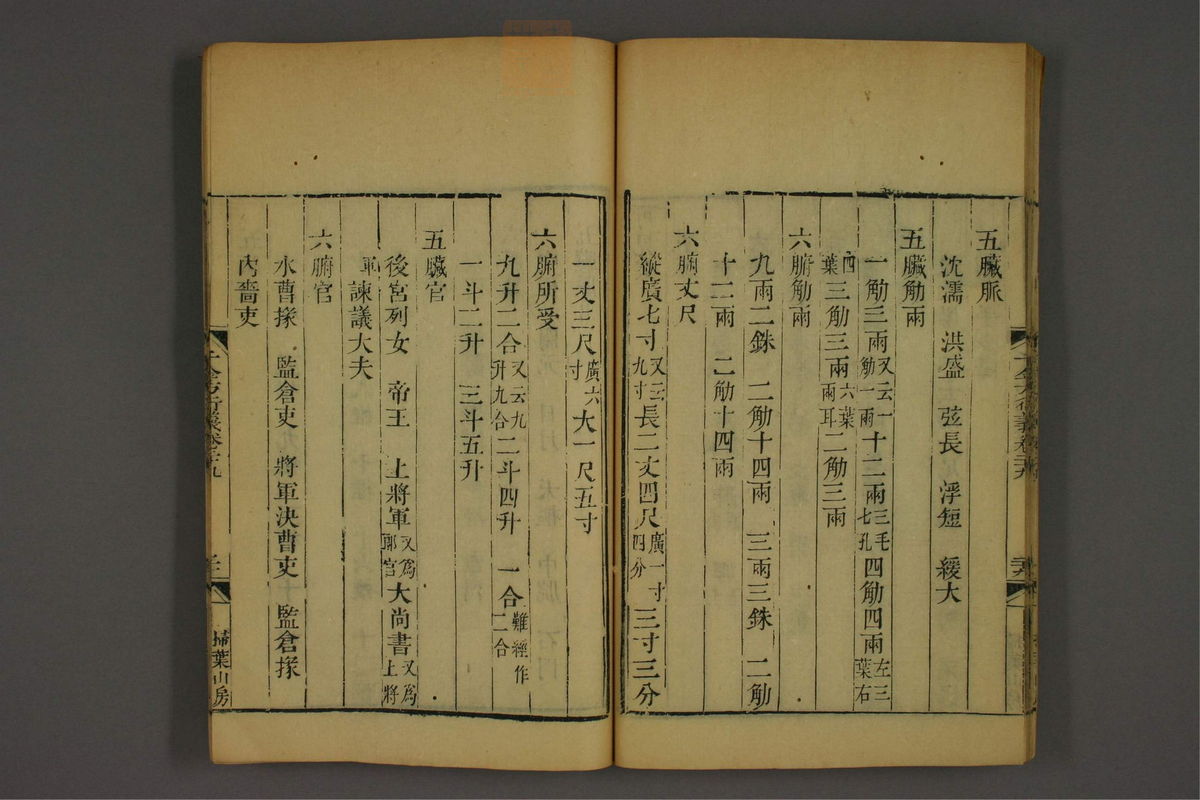 五臟脈
沈濡 洪盛 弦長 浮短 緩大
五臟觔兩
一觔三兩又云一觔一兩十二兩三毛七孔四觔四兩左三葉右
四葉三觔三兩六葉兩耳二觔三兩
六腑觔兩
九兩二銖 二觔十四兩 三兩三銖 二觔
十二兩 二觔十四兩
六腑丈尺
縱廣七寸又云九寸長二丈四尺廣一寸四分三寸三分
一丈三尺廣六寸大一尺五寸
六腑所受
九升二合又云九升九合二斗四升 一合難經作二合
一斗二升 三斗五升
五臟官
後宮列女 帝王 上將軍又爲郎官大尚書又爲上將
軍諫議大夫
六腑官
水曹掾 監倉吏 將軍決曹吏 監倉掾
內嗇吏
掃葉山房